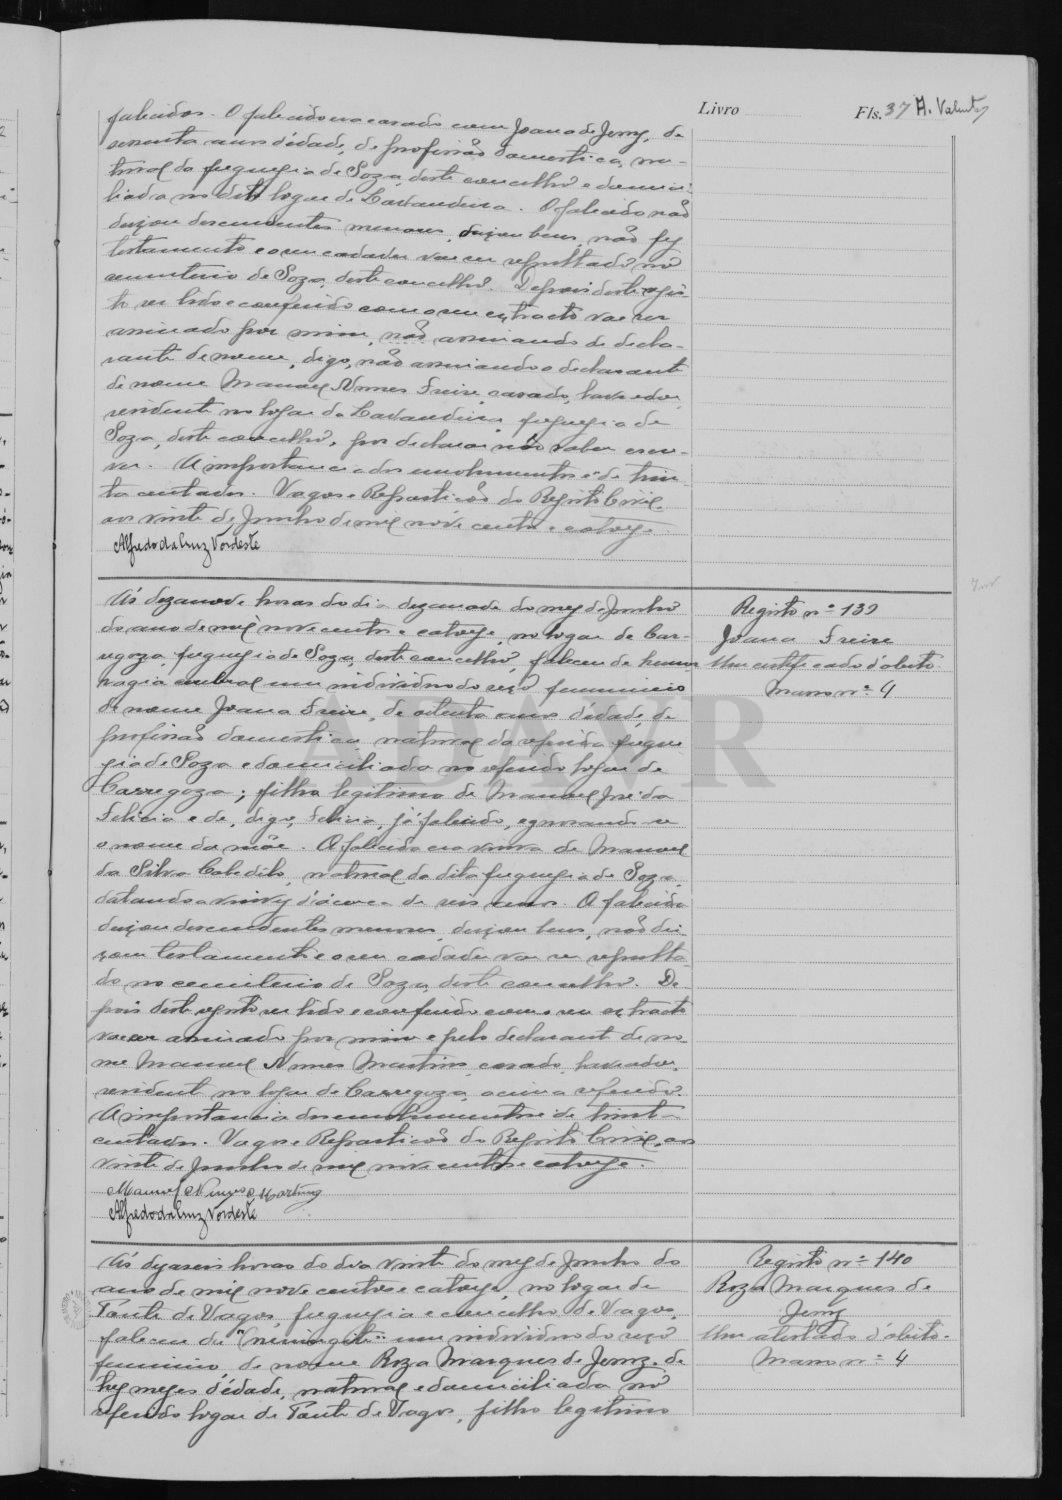 Livro Fls. 37 A. Valente
falecidos. O falecido era casado com Joana de Jesuz, de
sessenta anos d'édade, de profissão domestica, na-
tural da freguezia de Soza, deste concelho e domici-
liada no dito logar de Lavandeira. O falecido não
deixou descendentes menores, deixou bens, não fez
testamento e o seu cadaver vae ser sepultado no
cemiterio de Soza, deste concelho. Depois deste regis-
to ser lido e conferido com o seu extracto vae ser
assinado por mim, não assinando de decla-
rante de nome, digo, não assinando o declarante
de nome Manoel Nunes Freire, casado, lavrador,
residente no logar da Lavandeira, freguezia de
Soza, deste concelho, por declarar não saber escre-
ver. A importancia dos emolumentos é de trin-
ta centavos. Vagos e Repartição do Registo Civil,
aos vinte de Junho de mil nove centos e catorze.
Alfredo da Cruz Nordeste
Ás dezanove horas do dia dezanove do mez de Junho
do ano de mil nove centos e catorze, no logar de Car-
regoza, freguezia de Soza, deste concelho, faleceu de hemor-
ragia cerebral um individuo do sexo femenino
de nome Joana Freire, de oitenta anos d'édade, de
profissão domestica, natural da referida fregue-
zia de Soza e domiciliada no referido logar de
Carregoza; filha legitima de Manoel José da
Felicia e de, digo, Felicia, já falecido, egnorando-se
o nome da mãe. A falecida era viuva de Manoel
da Silva, natural da dita freguezia de Soza,
datando a viuvez d'ácerca de seis anos. A falecida
deixou descendentes menores, deixou bens, não dei-
xou testamento e o seu cadaver vae ser sepulta-
do no cemiterio de Soza, deste concelho. De-
pois deste registo ser lido e conferido com o seu extracto
vae ser assinado por mim e pelo declarante de no-
me Manoel Nunes Martins, casado, lavrador,
residente no logar de Carregoza, acima referido.
A importancia dos emolumentos é de trinta
centavos. Vagos e Repartição do Registo Civil, aos
vinte de Junho de mil nove centos e catorze.
Manoel Nunes Martins
Alfredo da Cruz Nordeste
Registo nº 139
Joana Freire
Um certificado d'obito
Masso nº 4
Ás dezaseis horas do dia vinte do mez de Junho do
ano de mil nove centos e catorze, no logar de
Ponte de Vagos, freguezia e concelho de Vagos,
faleceu de "meningite" um individuo do sexo
femenino de nome Roza Marques de Jesuz, de
trez mezes d'édade, natural e domiciliada no
referido logar de Ponte de Vagos, filha legitima
Registo nº 140
Roza Marques de
Jesuz
Um atestado d'obito.
Masso nº 4
ADAVR